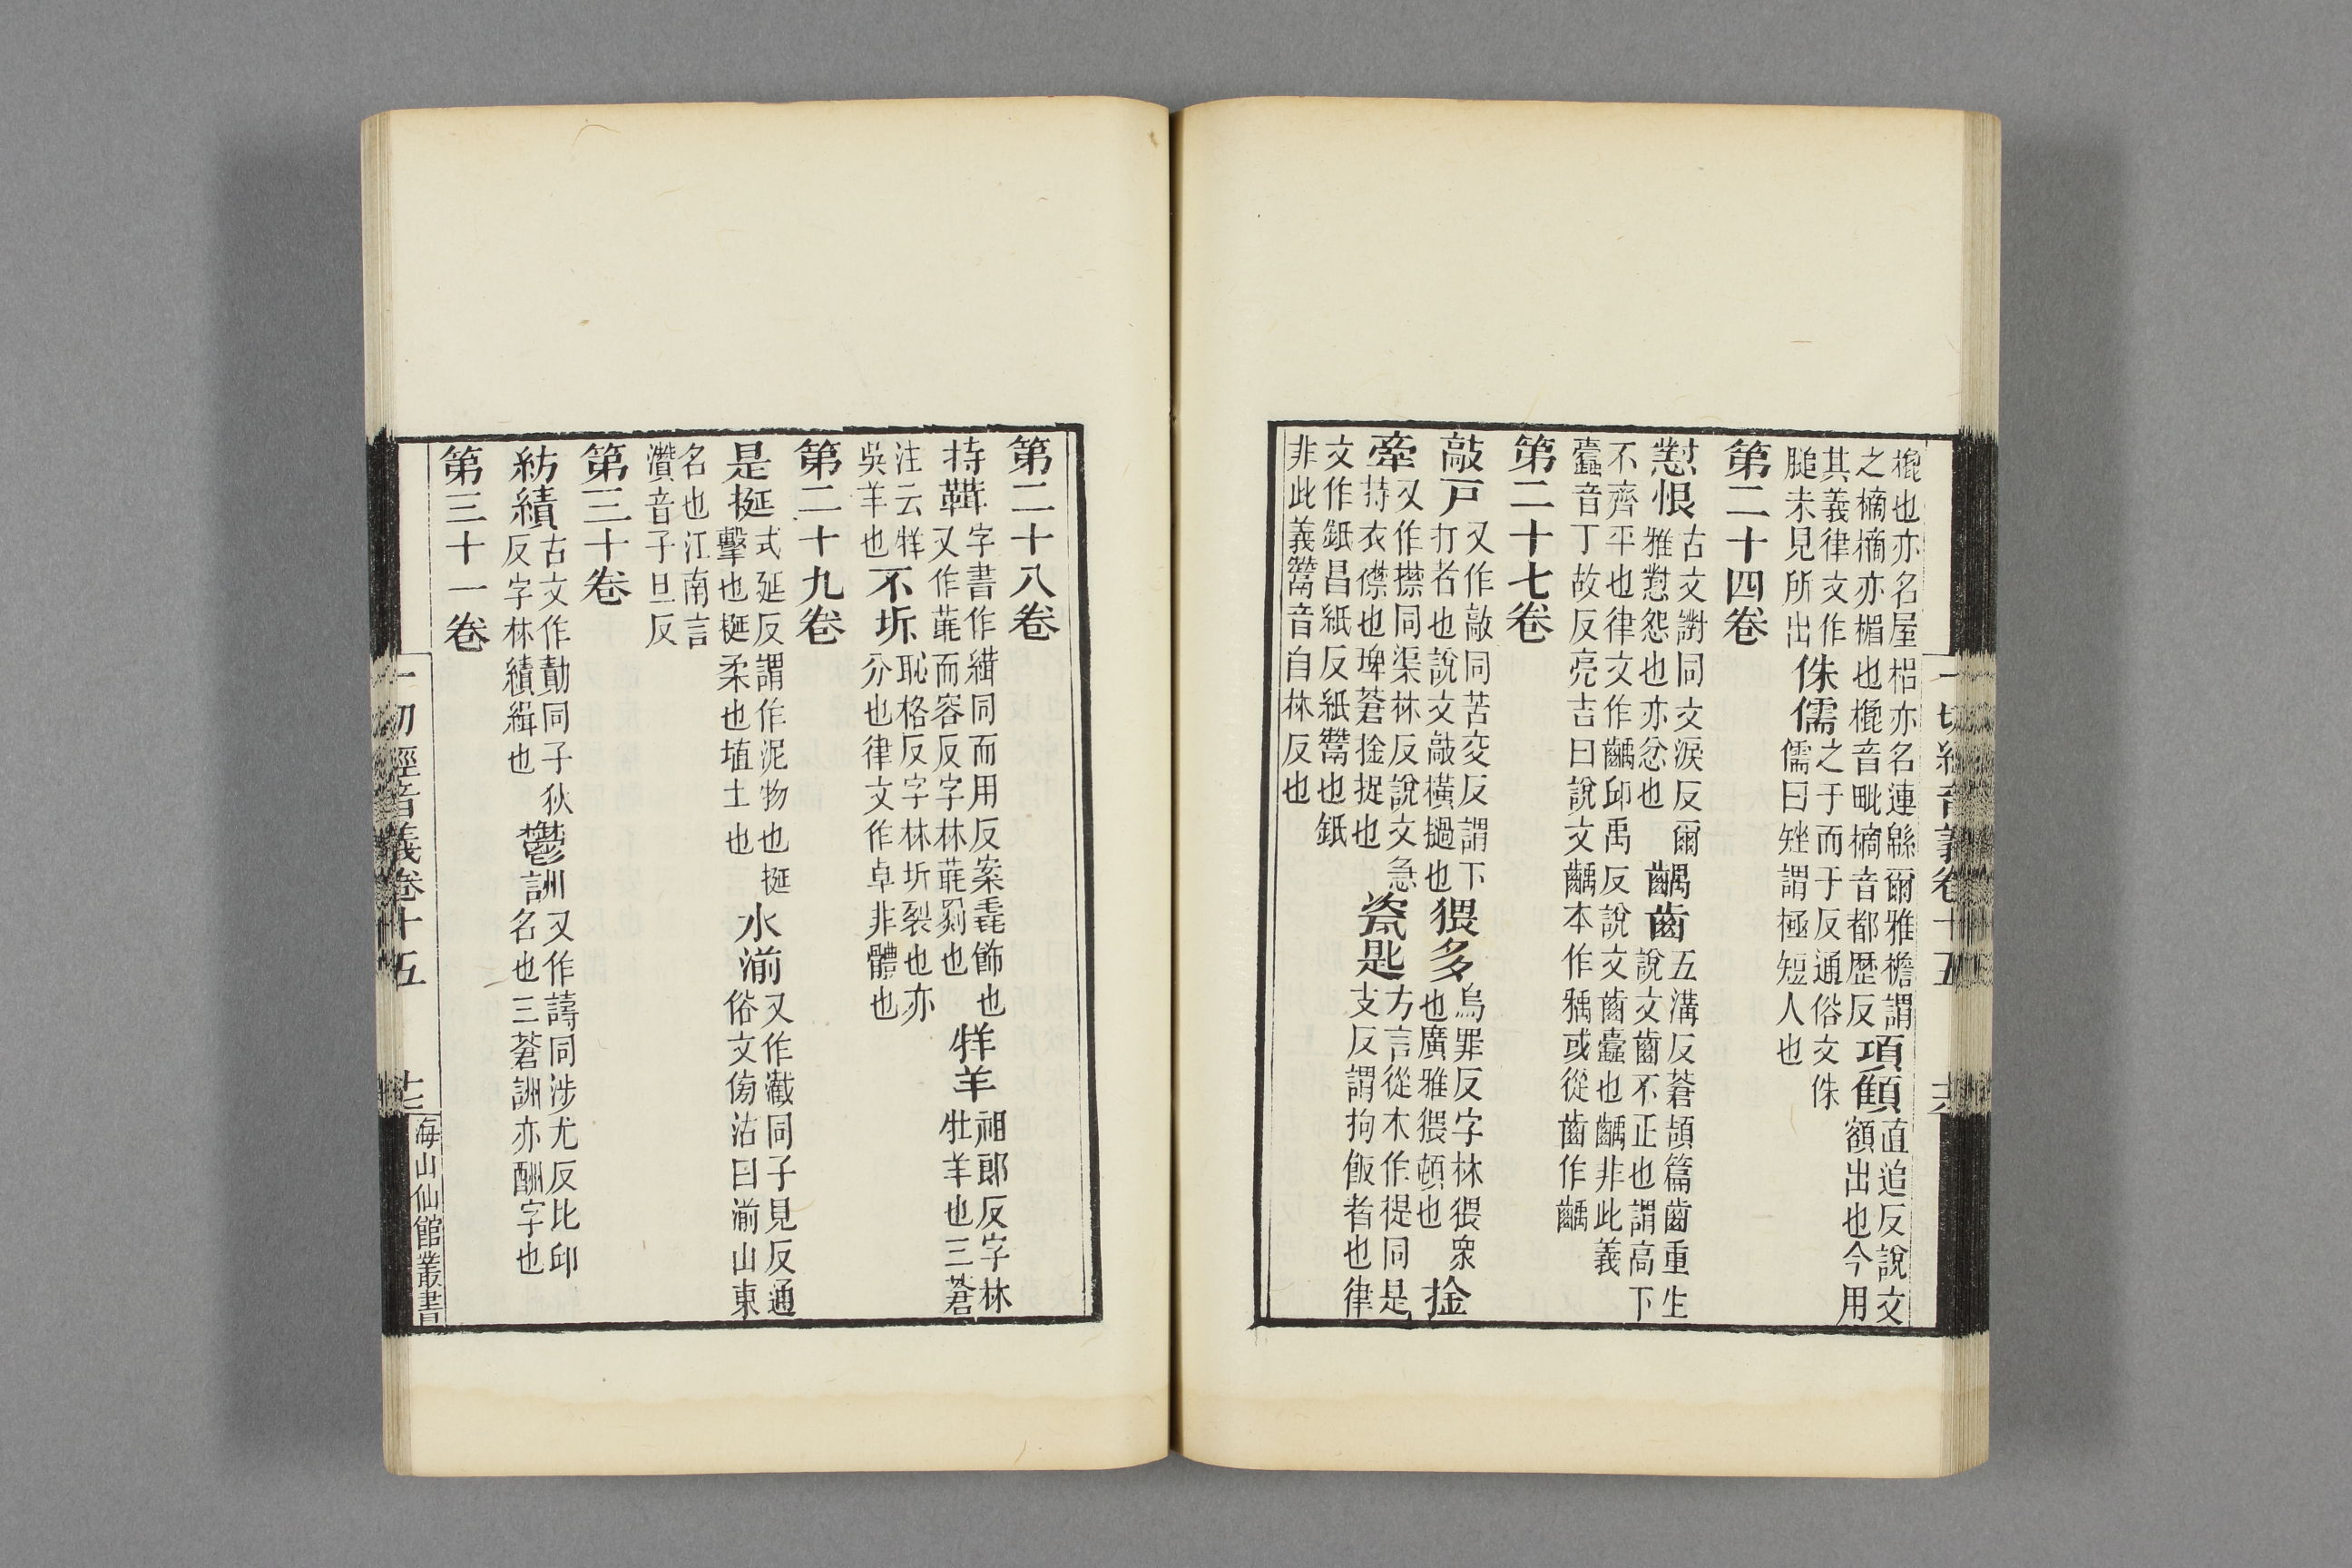 榥也亦名屋梠亦名連緜爾雅檐謂
之樀樀亦楣也榥音毗樀音都歷反
項顀
直追反說文
額出也今用
其義律文作
膇未見所出
侏儒
之于而于反通俗文侏
儒曰矬謂極短人也
第二十四卷
懟恨
古文譵同文淚反爾
雅懟怨也亦忿也
齵齒
五溝反蒼頡篇齒重生
說文齒不正也謂高下
不齊平也律文作齲邱禹反說文齒蠹也齲非此義
蠹音丁故反亮吉曰說文齲本作㺄或從齒作齲
第二十七卷
敲戸
又作敲同苦交反謂下
打者也說文敲橫撾也
猥多
烏罪反字林猥衆
也廣雅猥頓也
捦
牽
又作襟同渠林反說文急
持衣㯲也埤蒼捦捉也
瓷匙
方言從木作提同是
支反謂拘飯者也律
文作䤠昌紙反紙鬻也䤠
非此義鬻音自林反也
第二十八卷
持鞾
字書作緙同而用反案毳飾也
又作䩸而容反字林䩸罽也
牂羊
祖郎反字林
牡羊也三蒼
注云牂
吳羊也
不坼
恥格反字林坼裂也亦
分也律文作卓非體也
第二十九卷
是挻
式延反謂作泥物也挻
擊也挻柔也埴土也
水湔
又作灊同子見反通
俗文傍沾曰湔山東
名也江南言
灒音子旦反
第三十卷
紡績
古文作勣同子狄
反字林績緝也
鬱詶
又作譸同涉尤反比邱
名也三蒼詶亦酬字也
第三十一卷
一切經音義卷十五
海山仙館叢書